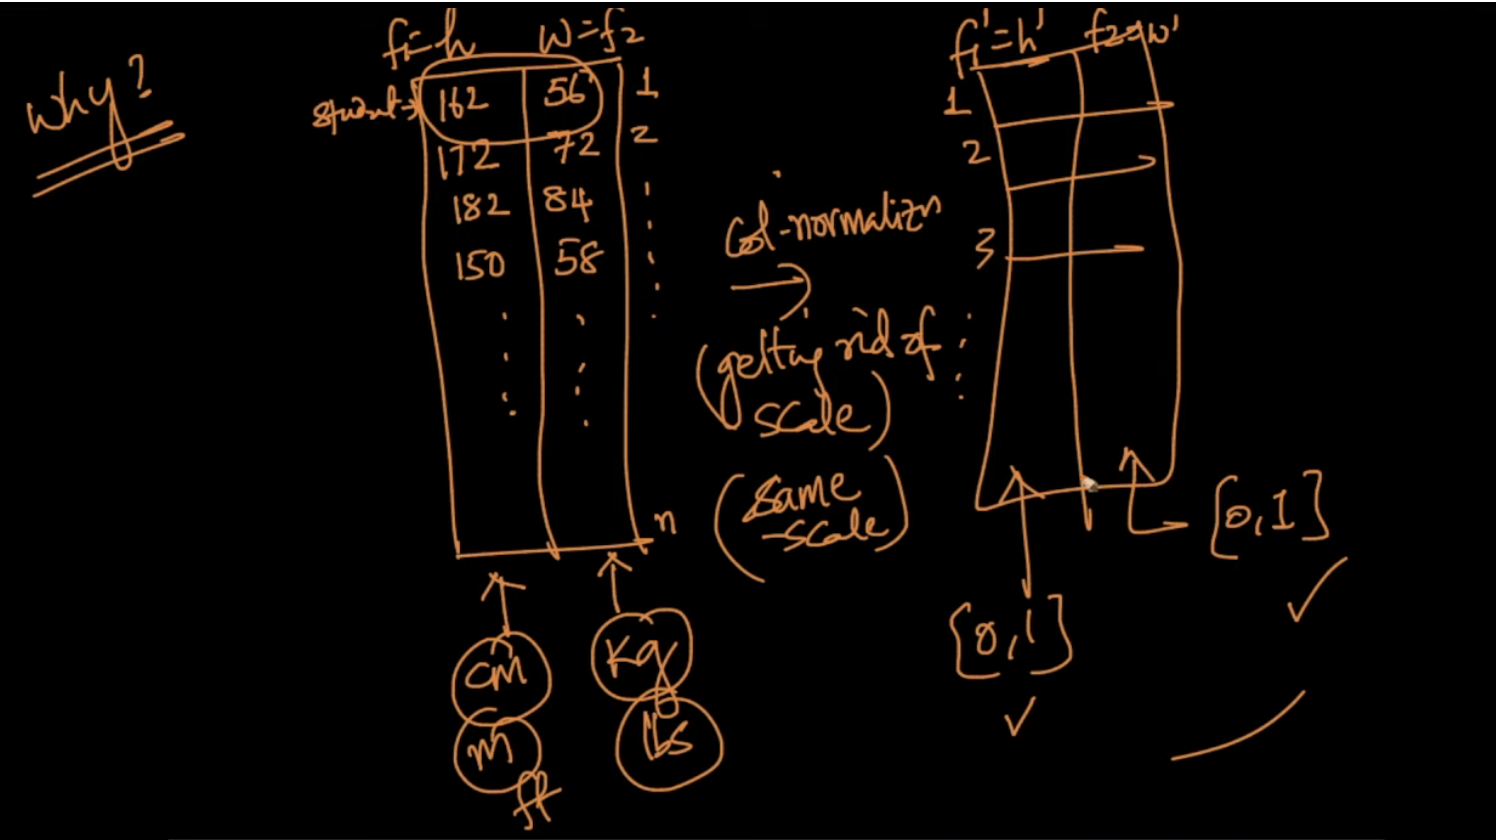 why?
f1=h w=f2
student → 162 56 1
172 72 2
182 84
150 58
n
cm kg
m lbs
ft
col-normalizn
(getting rid of
scale)
(same
-scale)
f1'=h' f2'=w'
1
2
3
[0,1]
[0,1]